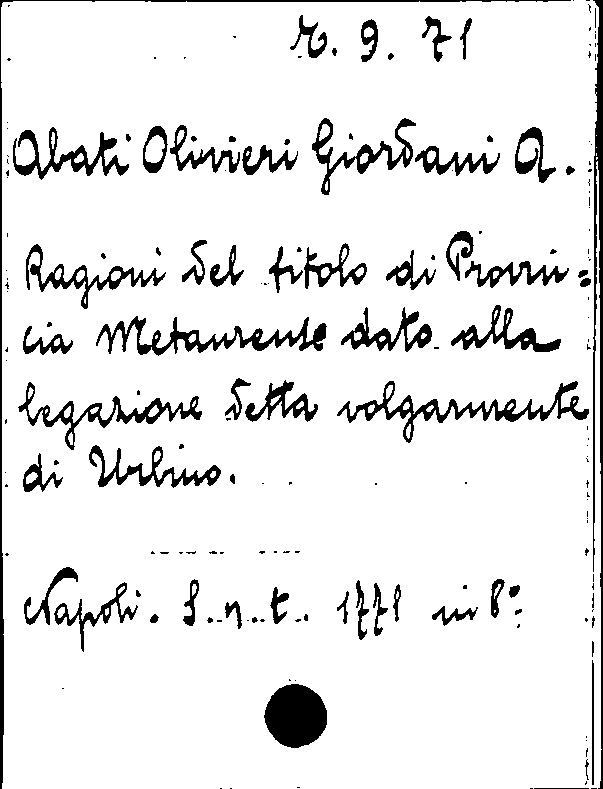 r. 9. 71
Abati Olivieri Giordani A.
Ragioni del titolo di Provin=
cia Metaurense dato alla
legazione detta volgarmente
di Urbino.
Napoli. S. n. t. 1771 in 8°.